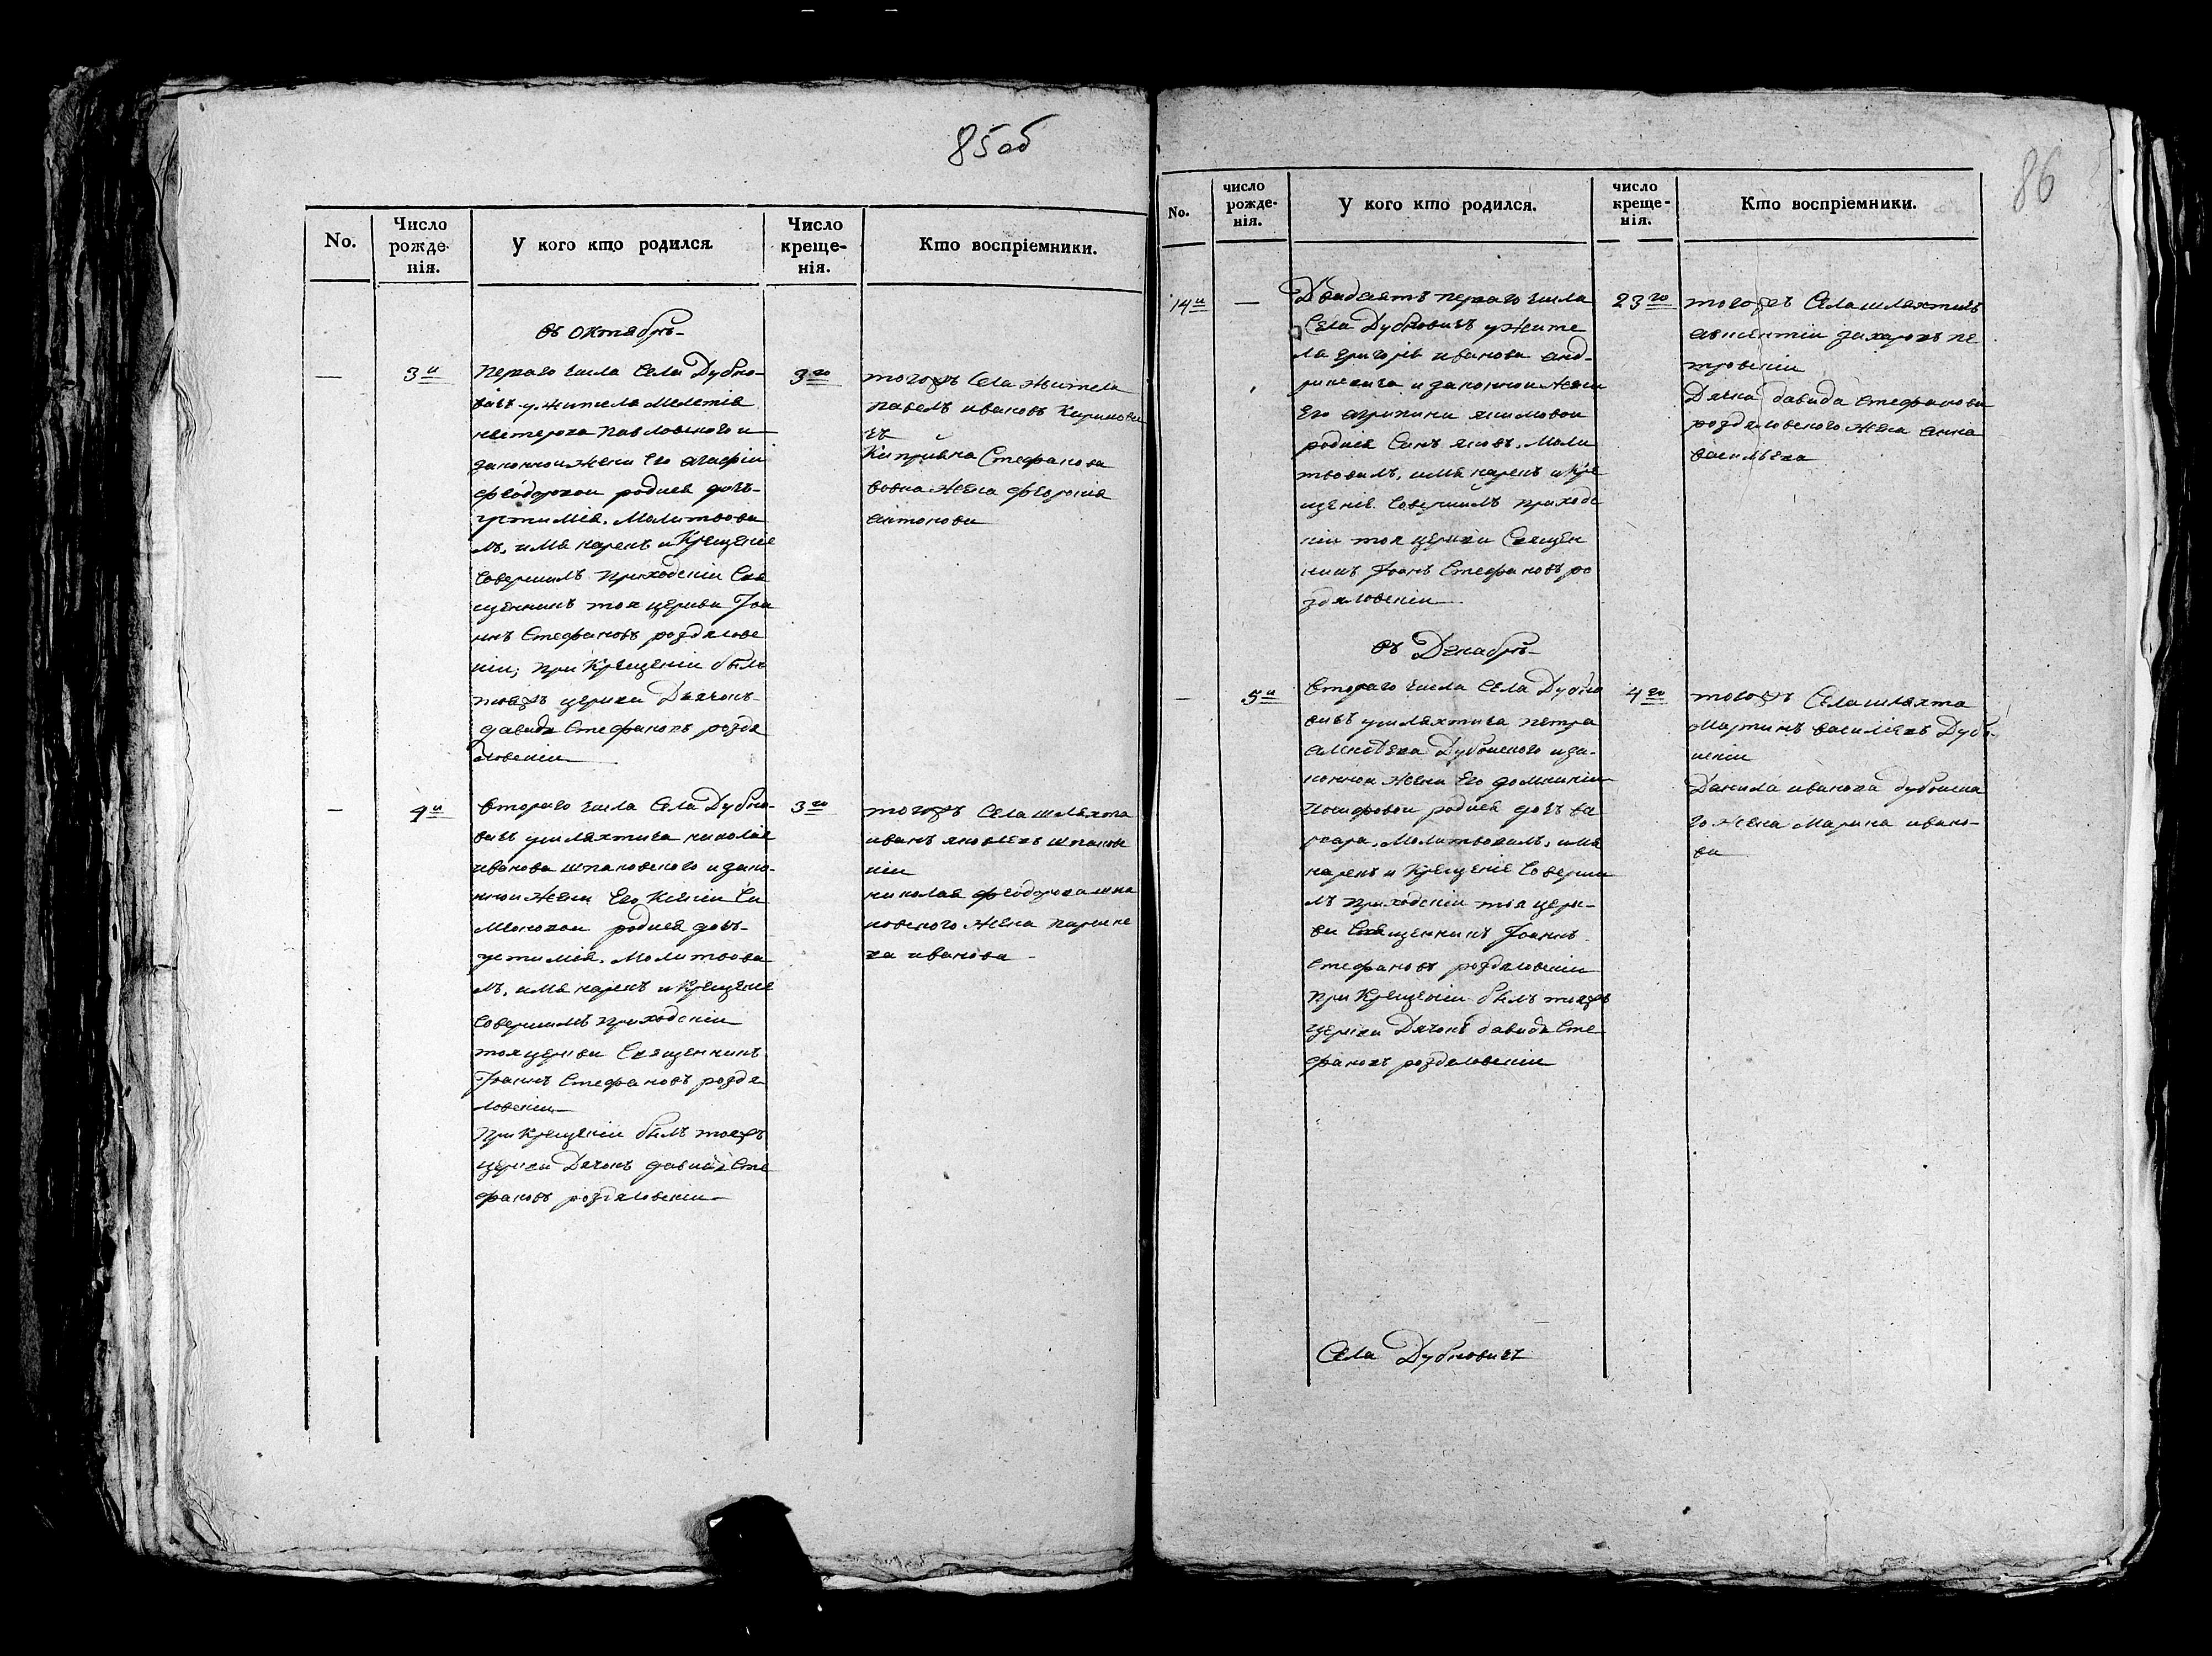 85 об
No.
Число
рожде-
нія.
У кого кто родился.
Число
креще-
нія.
Кто воспріемники.
въ октябрѣ
—
3 и
Перваго числа Села Дубно-
вичъ у жителя Мелетія
нестерова Павловского и
законнои жени Его агафіи
феодоровои родися дочъ
устимія. Молитвова
лъ, имя нарекъ и Крещеніе
Совершилъ приходскіи Свя
щенникъ тоя церкви Іоа
ннъ Стефановъ роздялов
скіи; при Крещеніи былъ
тояжъ церкви Дячокъ
давидъ Стефановъ роздя
ловскіи
3 го
тогожъ Села житель
Павелъ ивановъ
Стефанова
жена феросія
антонова
—
4 и
Второго числа Села Дубно-
вичъ ушляхтича николая
иванова шпаковского и зако-
ннои жени Его Ксеніи Си
моновои родися дочъ
устимія. Молитвова
лъ, имя нарекъ и Крещеніе
Совершилъ приходскіи
тоя церкви Священникъ
Іоаннъ Стефановъ роздя
ловскіи
при Крещеніи былъ тояжъ
церкви Дячокъ давидъ Сте
фановъ роздяловскіи
3 го
тогожъ Села шляхта
иванъ яковлевъ шпаков
скіи
николая феодорова шпа
ковского жена параске
ва иванова
86
No.
число
рожде-
нія.
У кого кто родился.
число
креще-
нія.
Кто воспріемники.
14 и
—
Двадсять перваго числа
Села Дубновичъ ужите
ля григорія иванова анд-
рикевича и законнои жени
Его агрипини якимовои
родися Синъ яковъ. Моли
твовалъ, имя нарекъ и Кре
щеніе Совершилъ приходс
кіи тоя церкви Священ
никъ Іоанъ Стефановъ ро
здяловскіи
23 го
тогожъ Села шляхтичъ
авксентіи захаровъ пе
тровскіи
Дячка давида Стефанова
роздяловского жена анна
василъева
въ Декабрѣ
—
5 и
Второго числа Села Дубно
вичъ ушляхтича петра
Дубоиского и за-
коннои жени Его домникіи
Иосифовои родися дочъ ва
рвара. Молитвовалъ, имя
нарекъ и Крещеніе Соверши
лъ приходскіи тоя церк-
ви Священникъ Іоаннъ
Стефановъ роздяловскіи
при Крещеніи былъ тояжъ
церкви Дячокъ давидъ Сте
фановъ роздяловскіи
4 го
тогожъ Села шляхта
Мартинъ василіевъ Дубо-
искіи
Данила иванова дубоиска
го жена Марина ивано-
ва
Села Дубновичъ